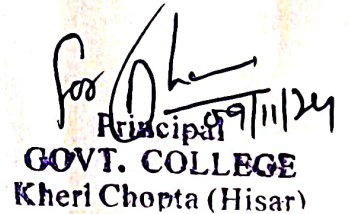 for
09/11/24
Principal
GOVT. COLLEGE
Kheri Chopta (Hisar)